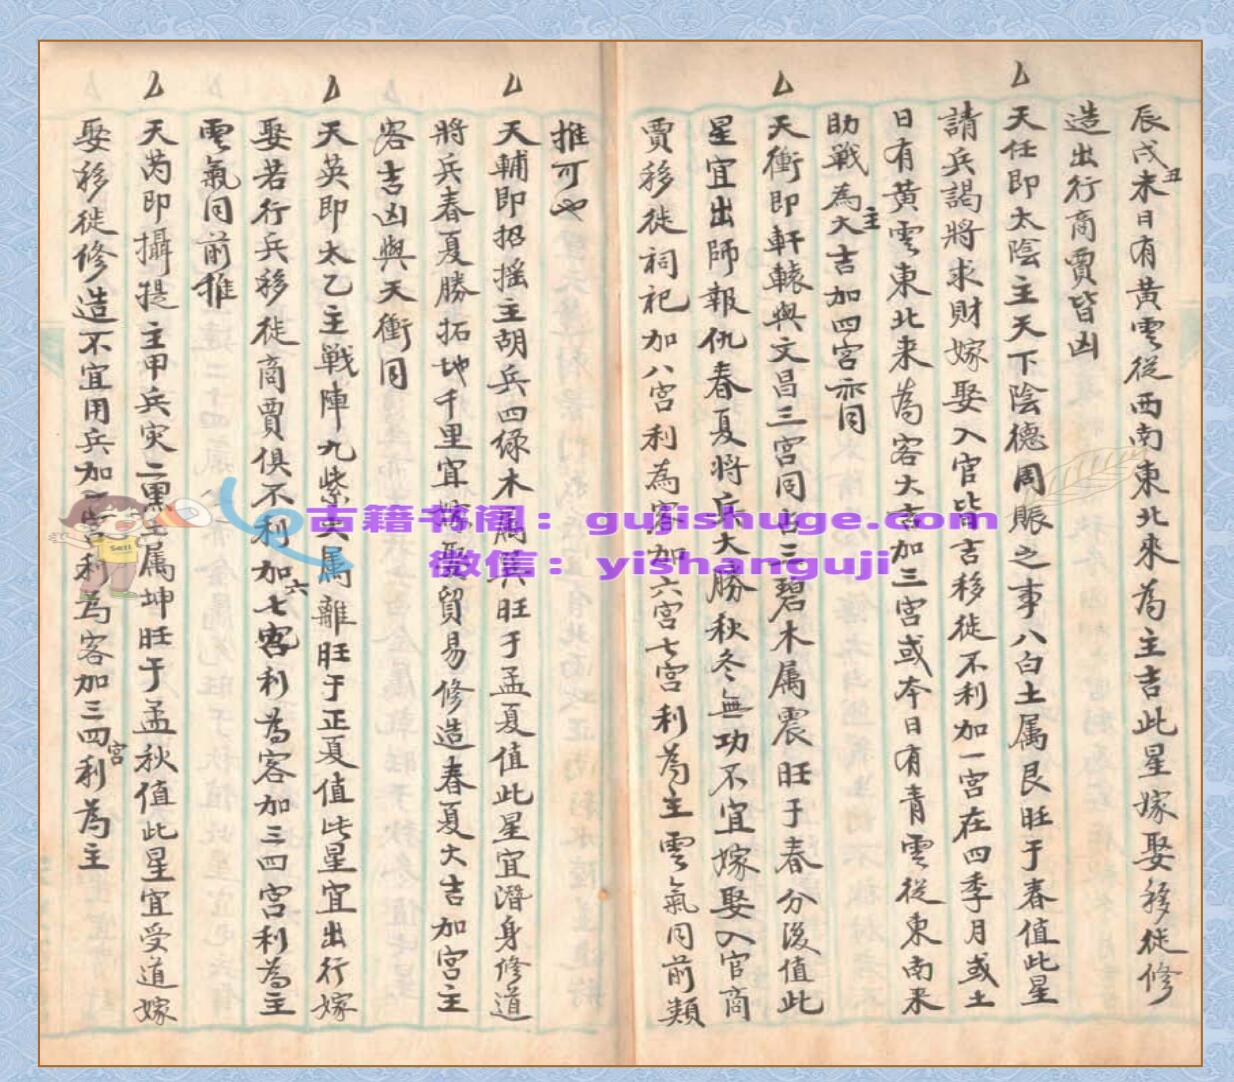 辰戌丑未日有黃雲從西南東北來為主吉此星嫁娶移徙修
造出行商賈皆凶
天任即太陰主天下陰德周賑之事八白土属艮旺于春值此星
請兵謁將求財嫁娶入官皆吉移徙不利加一宮在四季月或土
日有黃雲東北来為客大吉加三宮或本日有青雲從東南来
助戰為主大吉加四宮亦同
天衝即軒轅與文昌三宮同占三碧木属震旺于春分後值此
星宜出師報仇春夏將兵大勝秋冬無功不宜嫁娶入官商
賈移徙祠祀加八宮利為客加六宮七宮利為主雲氣同前類
推可也
天輔即招搖主胡兵四綠木属巽旺于孟夏值此星宜潛身修道
將兵春夏勝拓地千里宜嫁娶貿易修造春夏大吉加宮主
客吉凶與天衝同
天英即太乙主戰陣九紫火属離旺于正夏值此星宜出行嫁
娶若行兵移徙商賈俱不利加六七宮利為客加三四宮利為主
雲氣同前推
天芮即攝提主甲兵灾二黑土属坤旺于孟秋值此星宜受道嫁
娶移徙修造不宜用兵加一宮利為客加三四宮利為主
古籍书阁：gujishuge.com
微信：yishanguji